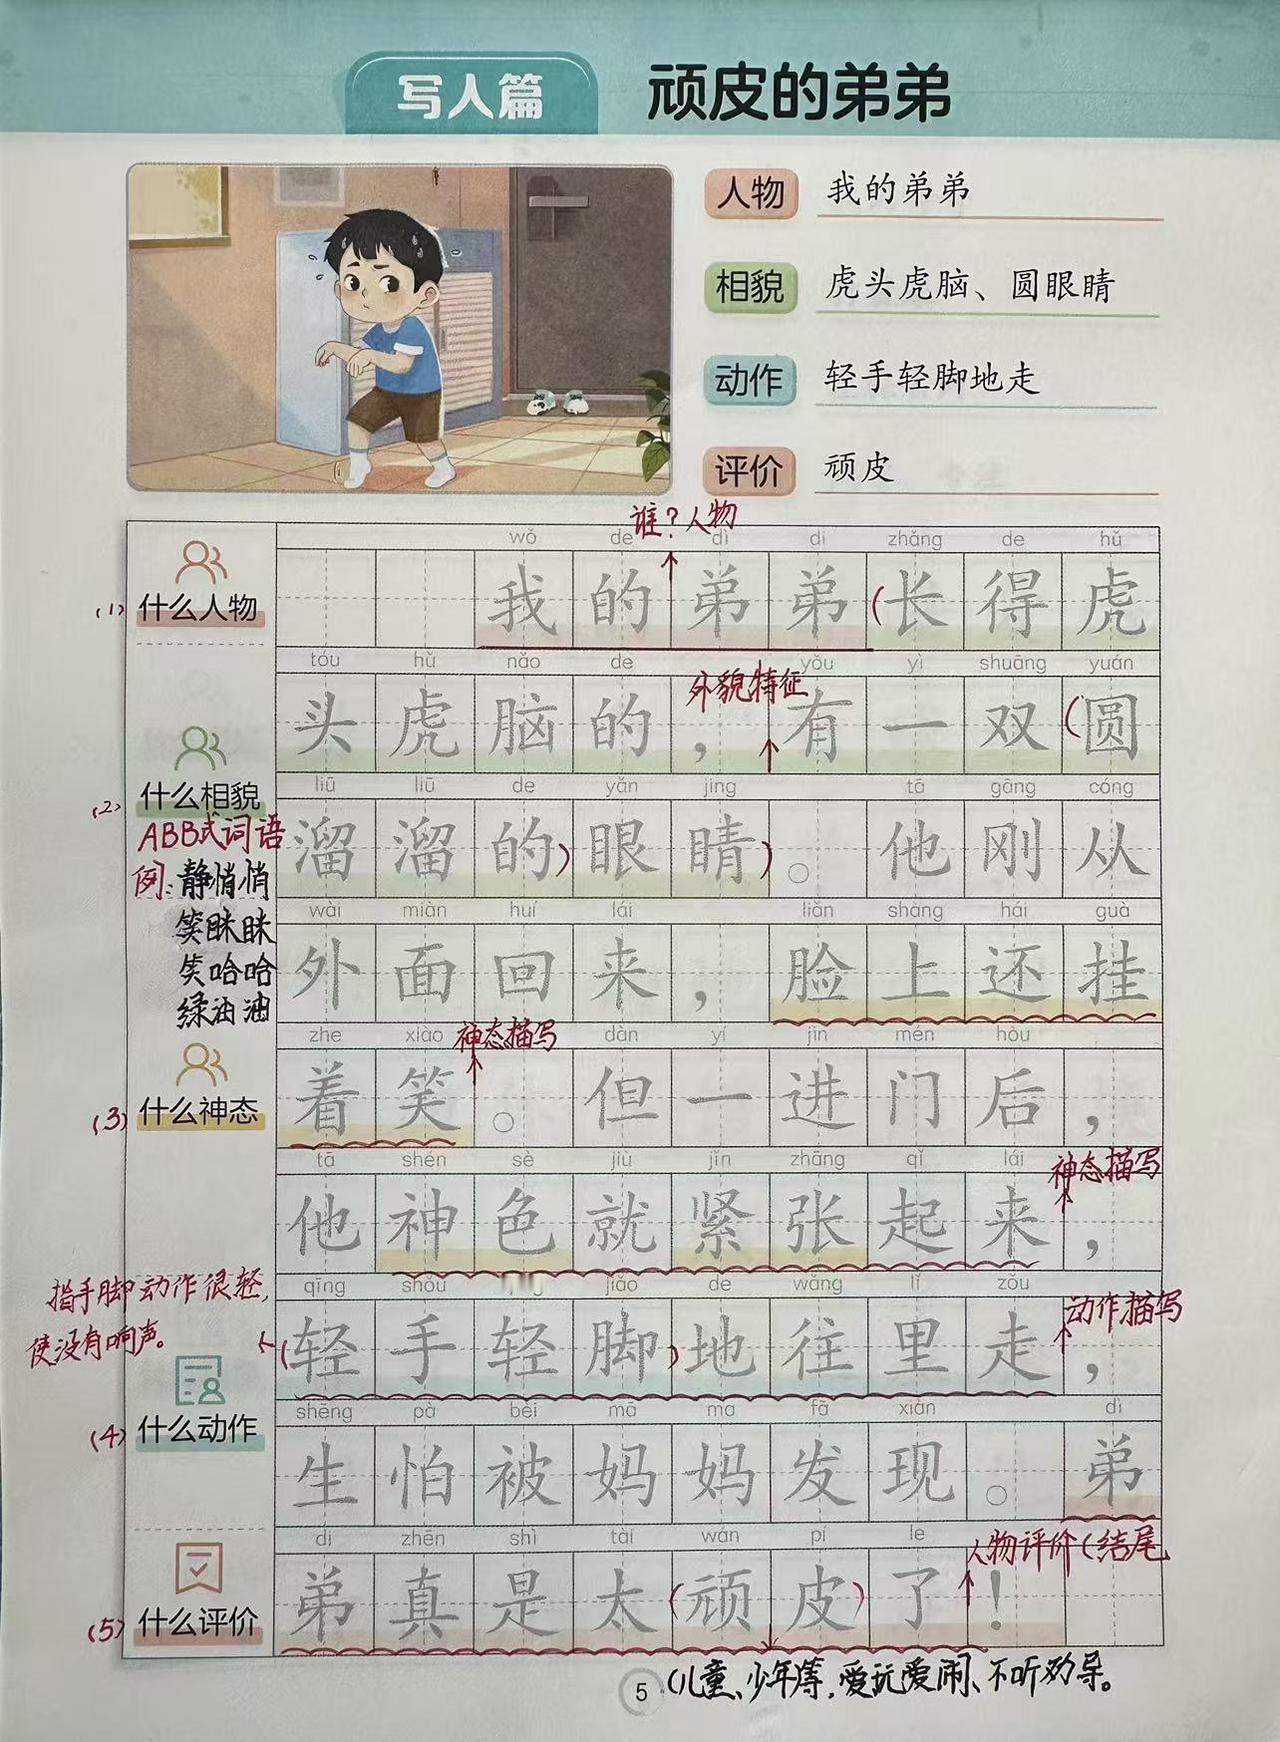 写人篇 顽皮的弟弟
人物 我的弟弟
相貌 虎头虎脑、圆眼睛
动作 轻手轻脚地走
评价 顽皮
谁？人物
wǒ de dì di zhǎng de hǔ
(1) 什么人物 我的弟弟(长得虎
tóu hǔ nǎo de yǒu yì shuāng yuán
外貌特征
头虎脑的，有一双(圆
liū liū de yǎn jing tā gāng cóng
(2) 什么相貌
ABB式词语
溜溜的)眼睛)。他刚从
例：静悄悄
笑眯眯
笑哈哈
绿油油
wài miàn huí lái liǎn shàng hái guà
外面回来，脸上还挂
zhe xiào dàn yí jìn mén hòu
神态描写
(3) 什么神态 着笑。但一进门后，
tā shén sè jiù jǐn zhāng qǐ lái
神态描写
他神色就紧张起来，
指手脚动作很轻，
使没有响声。
qīng shǒu jiǎo de wǎng lǐ zǒu
动作描写
(轻手轻脚)地往里走，
shēng pà bèi mā ma fā xiàn dì
(4) 什么动作 生怕被妈妈发现。弟
di zhēn shì tài wán pí le
人物评价(结尾
(5) 什么评价 弟真是太(顽皮)了！
5
(儿童、少年等，爱玩爱闹、不听劝导。